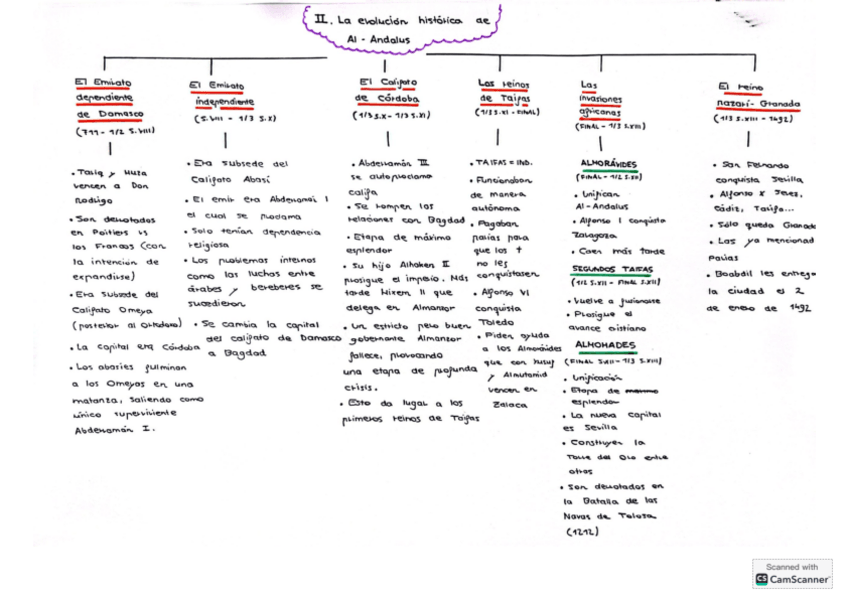 II. La evolución histórica de
Al-Andalus
El Emirato
dependiente
de Damasco
(711 - 1/2 S.VIII)
• Tariq y Muza
vencen a Don
Rodrigo
• Son derrotados
en Poitiers vs
los Francos (con
la intención de
expandirse)
• Era subsede del
Califato Omeya
(posterior al Ortodoxo)
• La capital era Córdoba
• Los abasíes fulminan
a los Omeyas en una
matanza, saliendo como
único superviviente
Abderramán I.
El Emirato
independiente
(S.VIII - 1/3 S.X)
• Era subsede del
Califato Abasí
• El emir era Abderramán I
el cual se proclama
• Solo tenían dependencia
religiosa
• Los problemas internos
como las luchas entre
árabes y bereberes se
sucedieron
• Se cambia la capital
del califato de Damasco
a Bagdad
El Califato
de Córdoba
(1/3 S.X - 1/3 S.XI)
• Abderramán III
se autoproclama
califa
• Se rompen las
relaciones con Bagdad
• Etapa de máximo
esplendor
• Su hijo Alhaken II
prosigue el imperio. Más
tarde Hixem II que
delega en Almanzor
• Un estricto pero buen
gobernante Almanzor
fallece, provocando
una etapa de profunda
crisis.
• Esto da lugar a los
primeros reinos de Taifas
Los reinos
de Taifas
(1/3 S.XI - FINAL)
• TAIFAS = IND.
• Funcionaban
de manera
autónoma
• Pagaban
parias para
que los †
no les
conquistasen
• Alfonso VI
conquista
Toledo
• Piden ayuda
a los Almorávides
que con Yusuf
y Almutamid
vencen en
Zalaca
Las
invasiones
africanas
(FINAL - 1/3 S.XIII)
ALMORÁVIDES
(FINAL - 1/2 S.XII)
• Unifican
Al-Andalus
• Alfonso I conquista
Zaragoza
• Caen más tarde
SEGUNDOS TAIFAS
(1/2 S.XII - FINAL S.XII)
• Vuelve a fusionarse
• Prosigue el
avance cristiano
ALMOHADES
(FINAL S.XII - 1/3 S.XIII)
• Unificación
• Etapa de
esplendor
• La nueva capital
es Sevilla
• Construyen la
Torre del Oro entre
otros
• Son derrotados en
la Batalla de las
Navas de Tolosa
(1212)
El reino
nazarí-Granada
(1/3 S.XIII - 1492)
• San Fernando
conquista Sevilla
• Alfonso X Jerez,
Cádiz, Tarifa...
• Sólo queda Granada
• Las ya mencionad
Parias
• Boabdil les entrega
la ciudad el 2
de enero de 1492
Scanned with
CS CamScanner